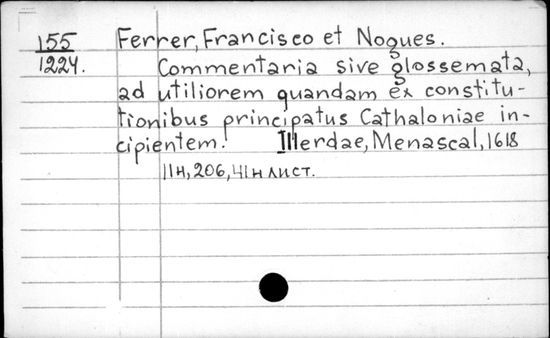 155 Ferrer, Francisco et Nogues.
1224. Commentaria sive glossemata,
ad utiliorem quandam ex constitu-
tionibus principatus Cathaloniae in-
cipientem. Illerdae, Menascal, 1618
11н, 206, 41н лист.